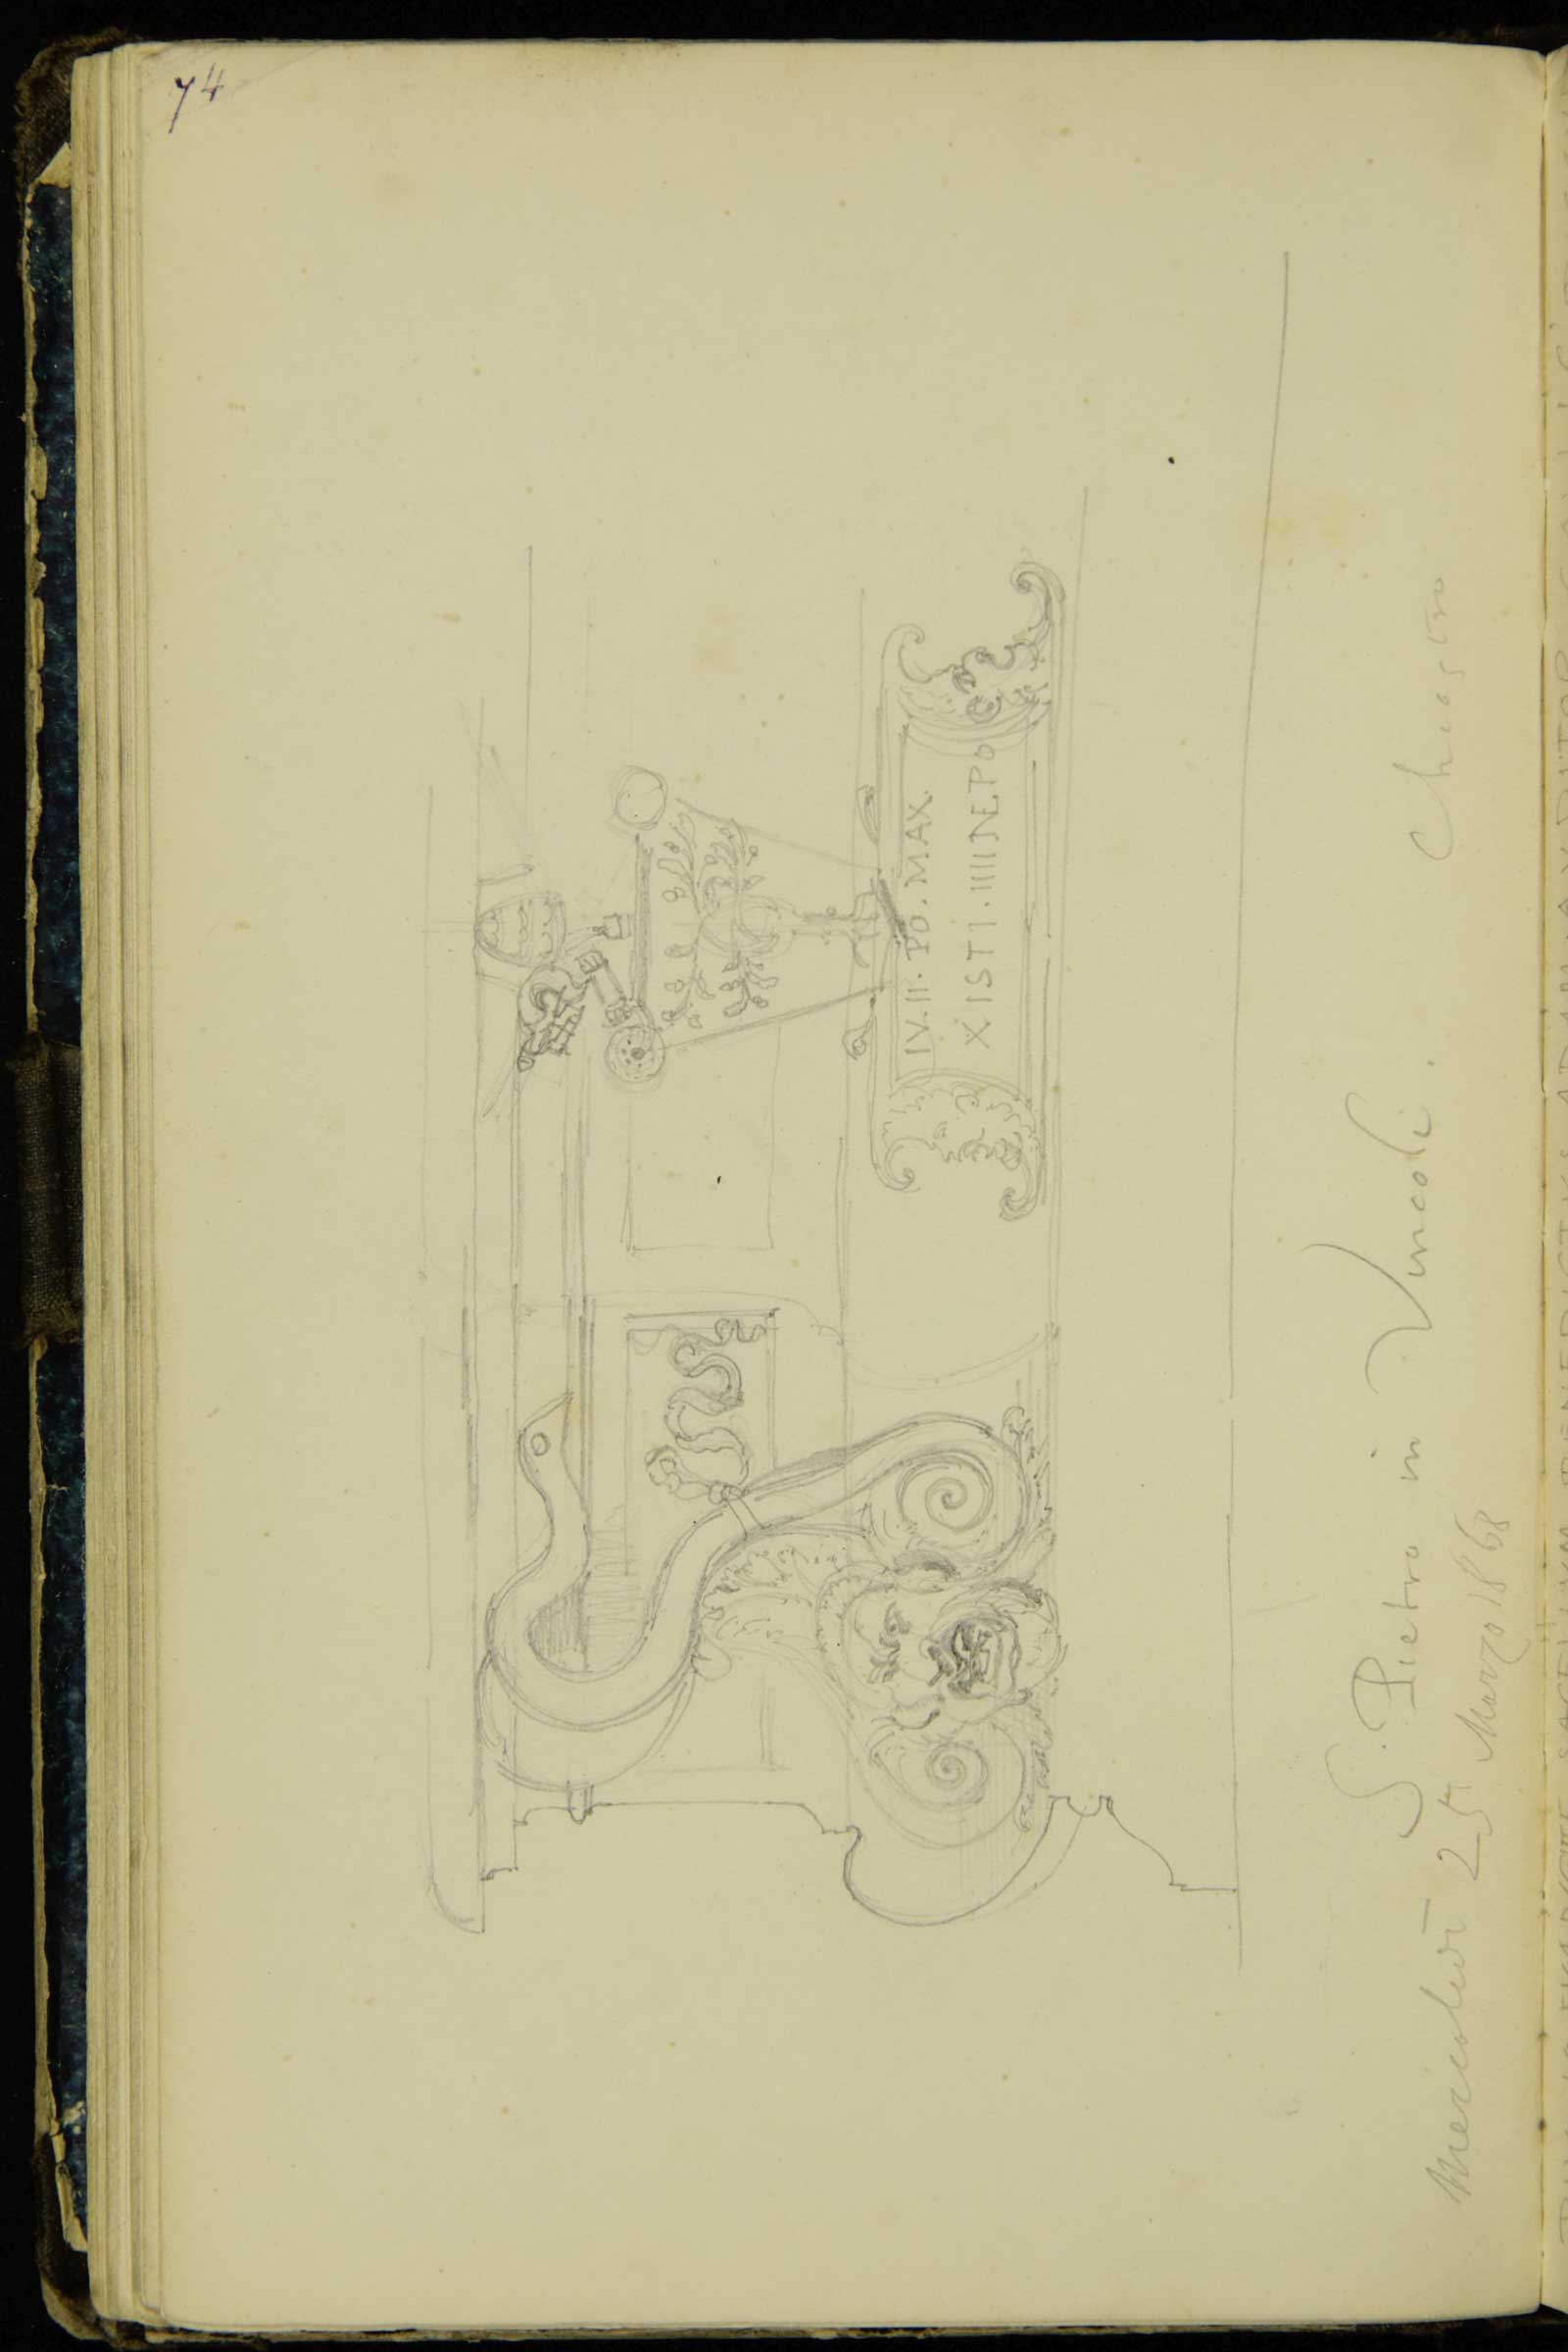 74
IV. II. PO. MAX.
XISTI. IIII NEPO
S. Pietro in Vincoli. Chiostro
Mercoledì 25 Marzo 1868